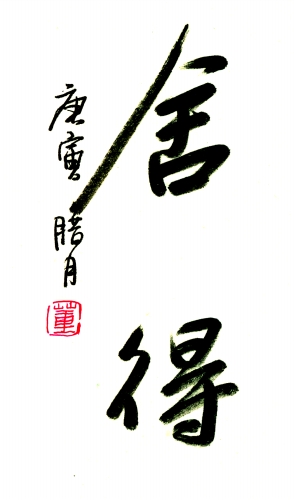 舍得
庚寅腊月
董